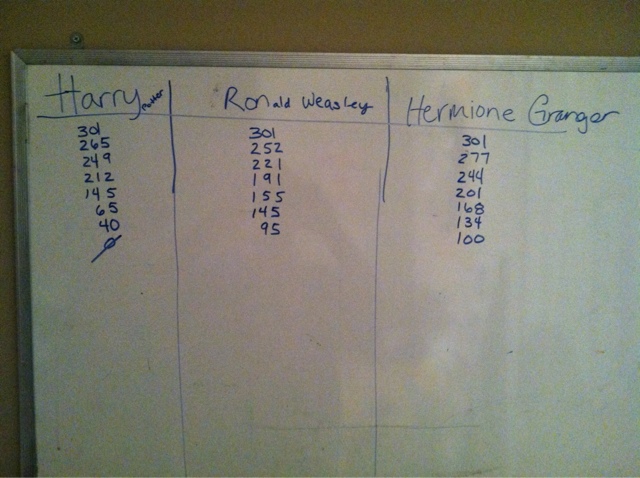 Harry Potter Ronald Weasley Hermione Granger
301 301 301
265 252 277
249 221 244
212 191 201
145 155 168
65 145 134
40 95 100
0